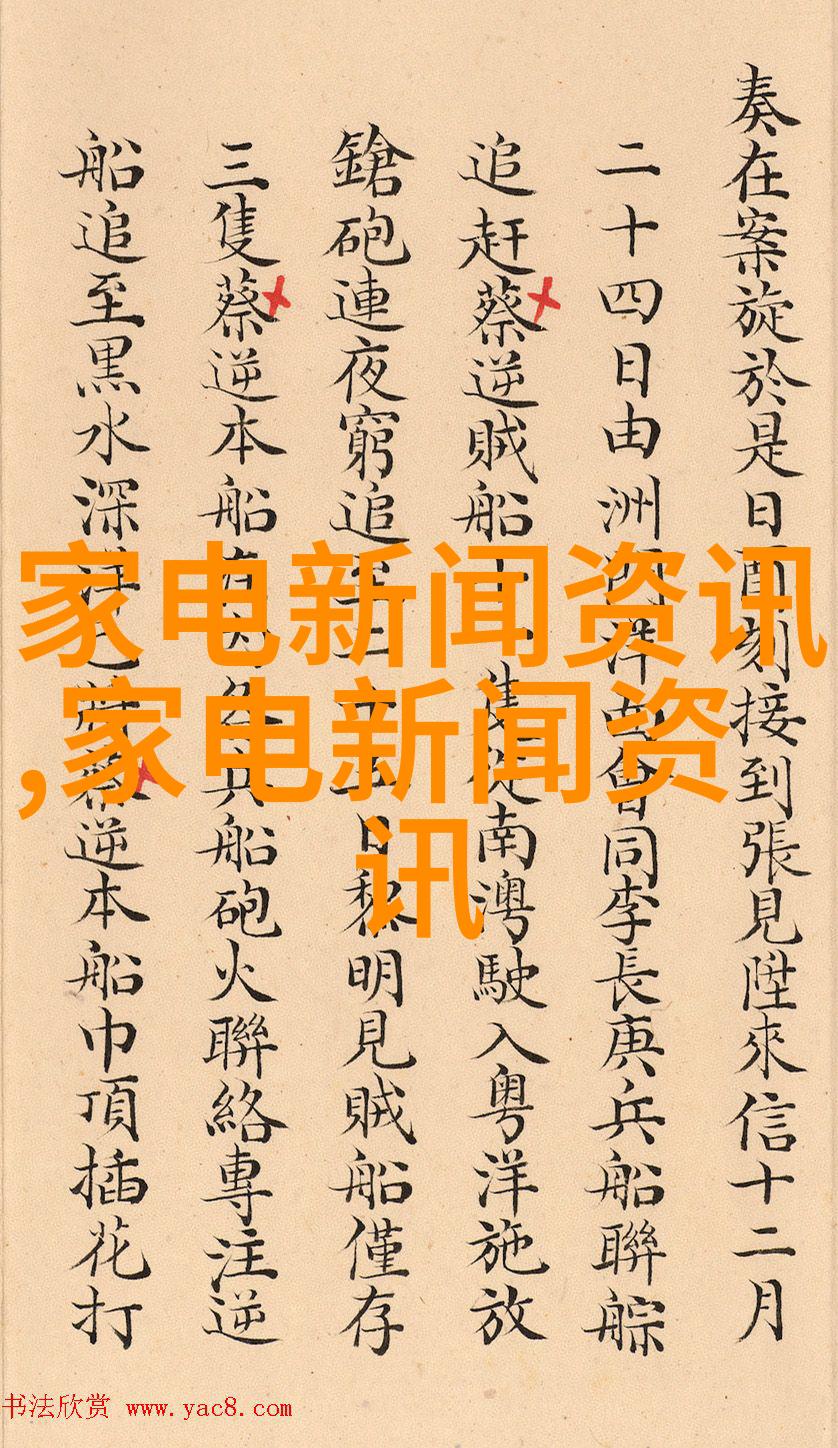 奏在案旋於是日酉刻接到張見陞來信十二月
二十四日由洲洋面會同李長庚兵船聯䑸
追赶蔡逆賊船十一隻從南澳駛入粤洋施放
鎗砲連夜窮追至二十五日黎明見賊船僅存
三隻蔡逆本船在內各兵船砲火聯絡專注逆
船追至黑水深洋已將蔡逆本船巾頂插花打
家电新闻资讯
,家电新闻资
讯
书法欣赏 www.yac8.com